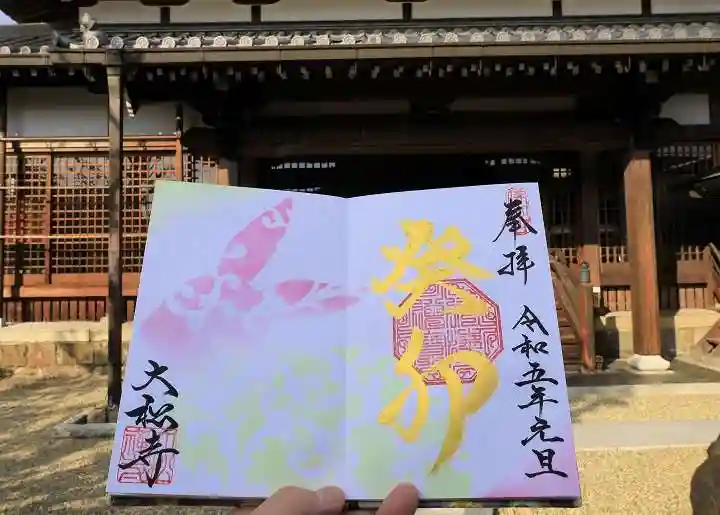 奉拝
令和五年元旦
癸卯
大松寺